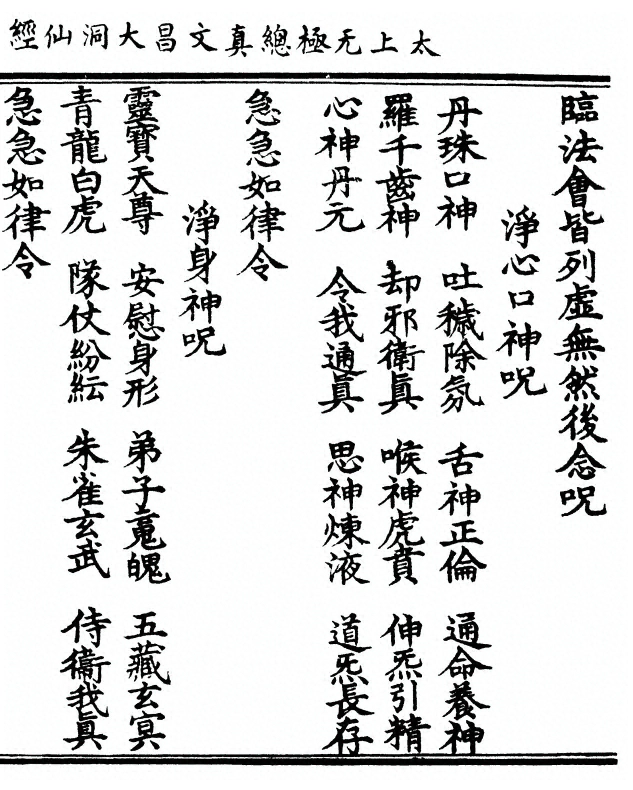 太上无極總真文昌大洞仙經
臨法會皆列虛無然後念呪
淨心口神呪
丹珠口神 吐穢除氛 舌神正倫 通命養神
羅千齒神 却邪衛眞 喉神虎賁 伸炁引精
心神丹元 令我通眞 思神煉液 道炁長存
急急如律令
淨身神呪
靈寶天尊 安慰身形 弟子䰟魄 五藏玄冥
青龍白虎 隊仗紛紜 朱雀玄武 侍衞我眞
急急如律令